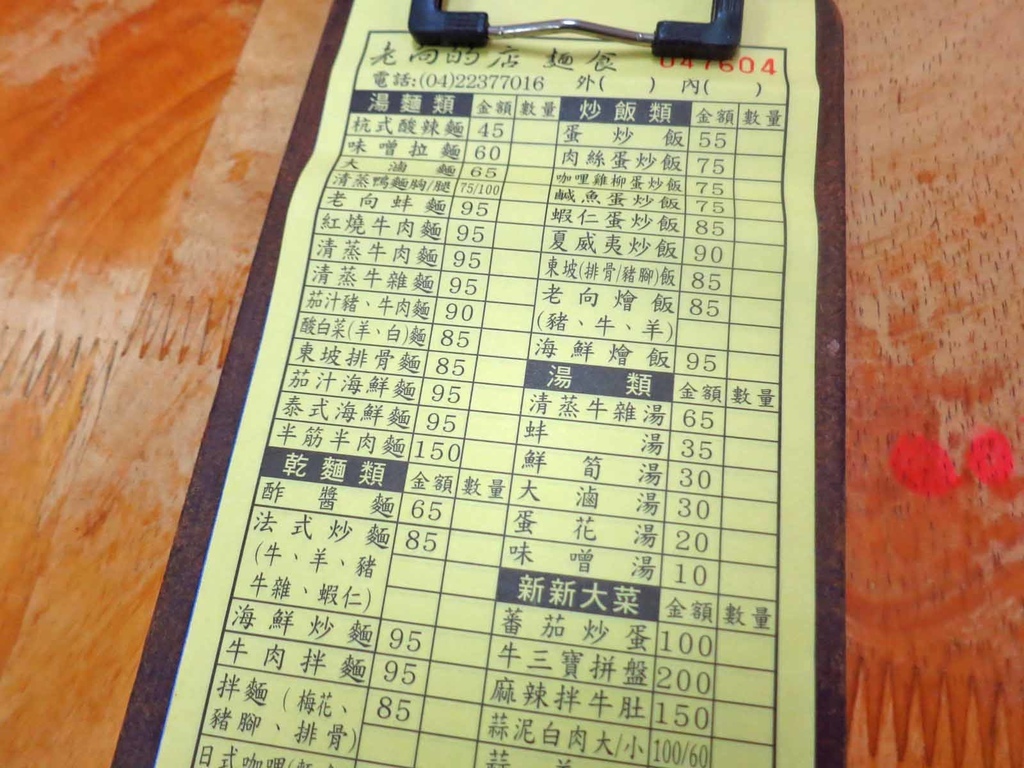 老向的店 麵食
047604
電話:(04)22377016 外( ) 內( )
湯麵類 金額 數量
杭式酸辣麵 45
味噌拉麵 60
大滷麵 65
清蒸鴨麵胸/腿 75/100
老向蚌麵 95
紅燒牛肉麵 95
清蒸牛肉麵 95
清蒸牛雜麵 95
茄汁豬、牛肉麵 90
酸白菜(羊、白)麵 85
東坡排骨麵 85
茄汁海鮮麵 95
泰式海鮮麵 95
半筋半肉麵 150
乾麵類 金額 數量
酢醬麵 65
法式炒麵 85
(牛、羊、豬
牛雜、蝦仁)
海鮮炒麵 95
牛肉拌麵 95
拌麵(梅花、 85
豬腳、排骨)
日式咖哩
炒飯類 金額 數量
蛋炒飯 55
肉絲蛋炒飯 75
咖哩雞柳蛋炒飯 75
鹹魚蛋炒飯 75
蝦仁蛋炒飯 85
夏威夷炒飯 90
東坡(排骨/豬腳)飯 85
老向燴飯 85
(豬、牛、羊)
海鮮燴飯 95
湯類 金額 數量
清蒸牛雜湯 65
蚌湯 35
鮮筍湯 30
大滷湯 30
蛋花湯 20
味噌湯 10
新新大菜 金額 數量
蕃茄炒蛋 100
牛三寶拼盤 200
麻辣拌牛肚 150
蒜泥白肉大/小 100/60